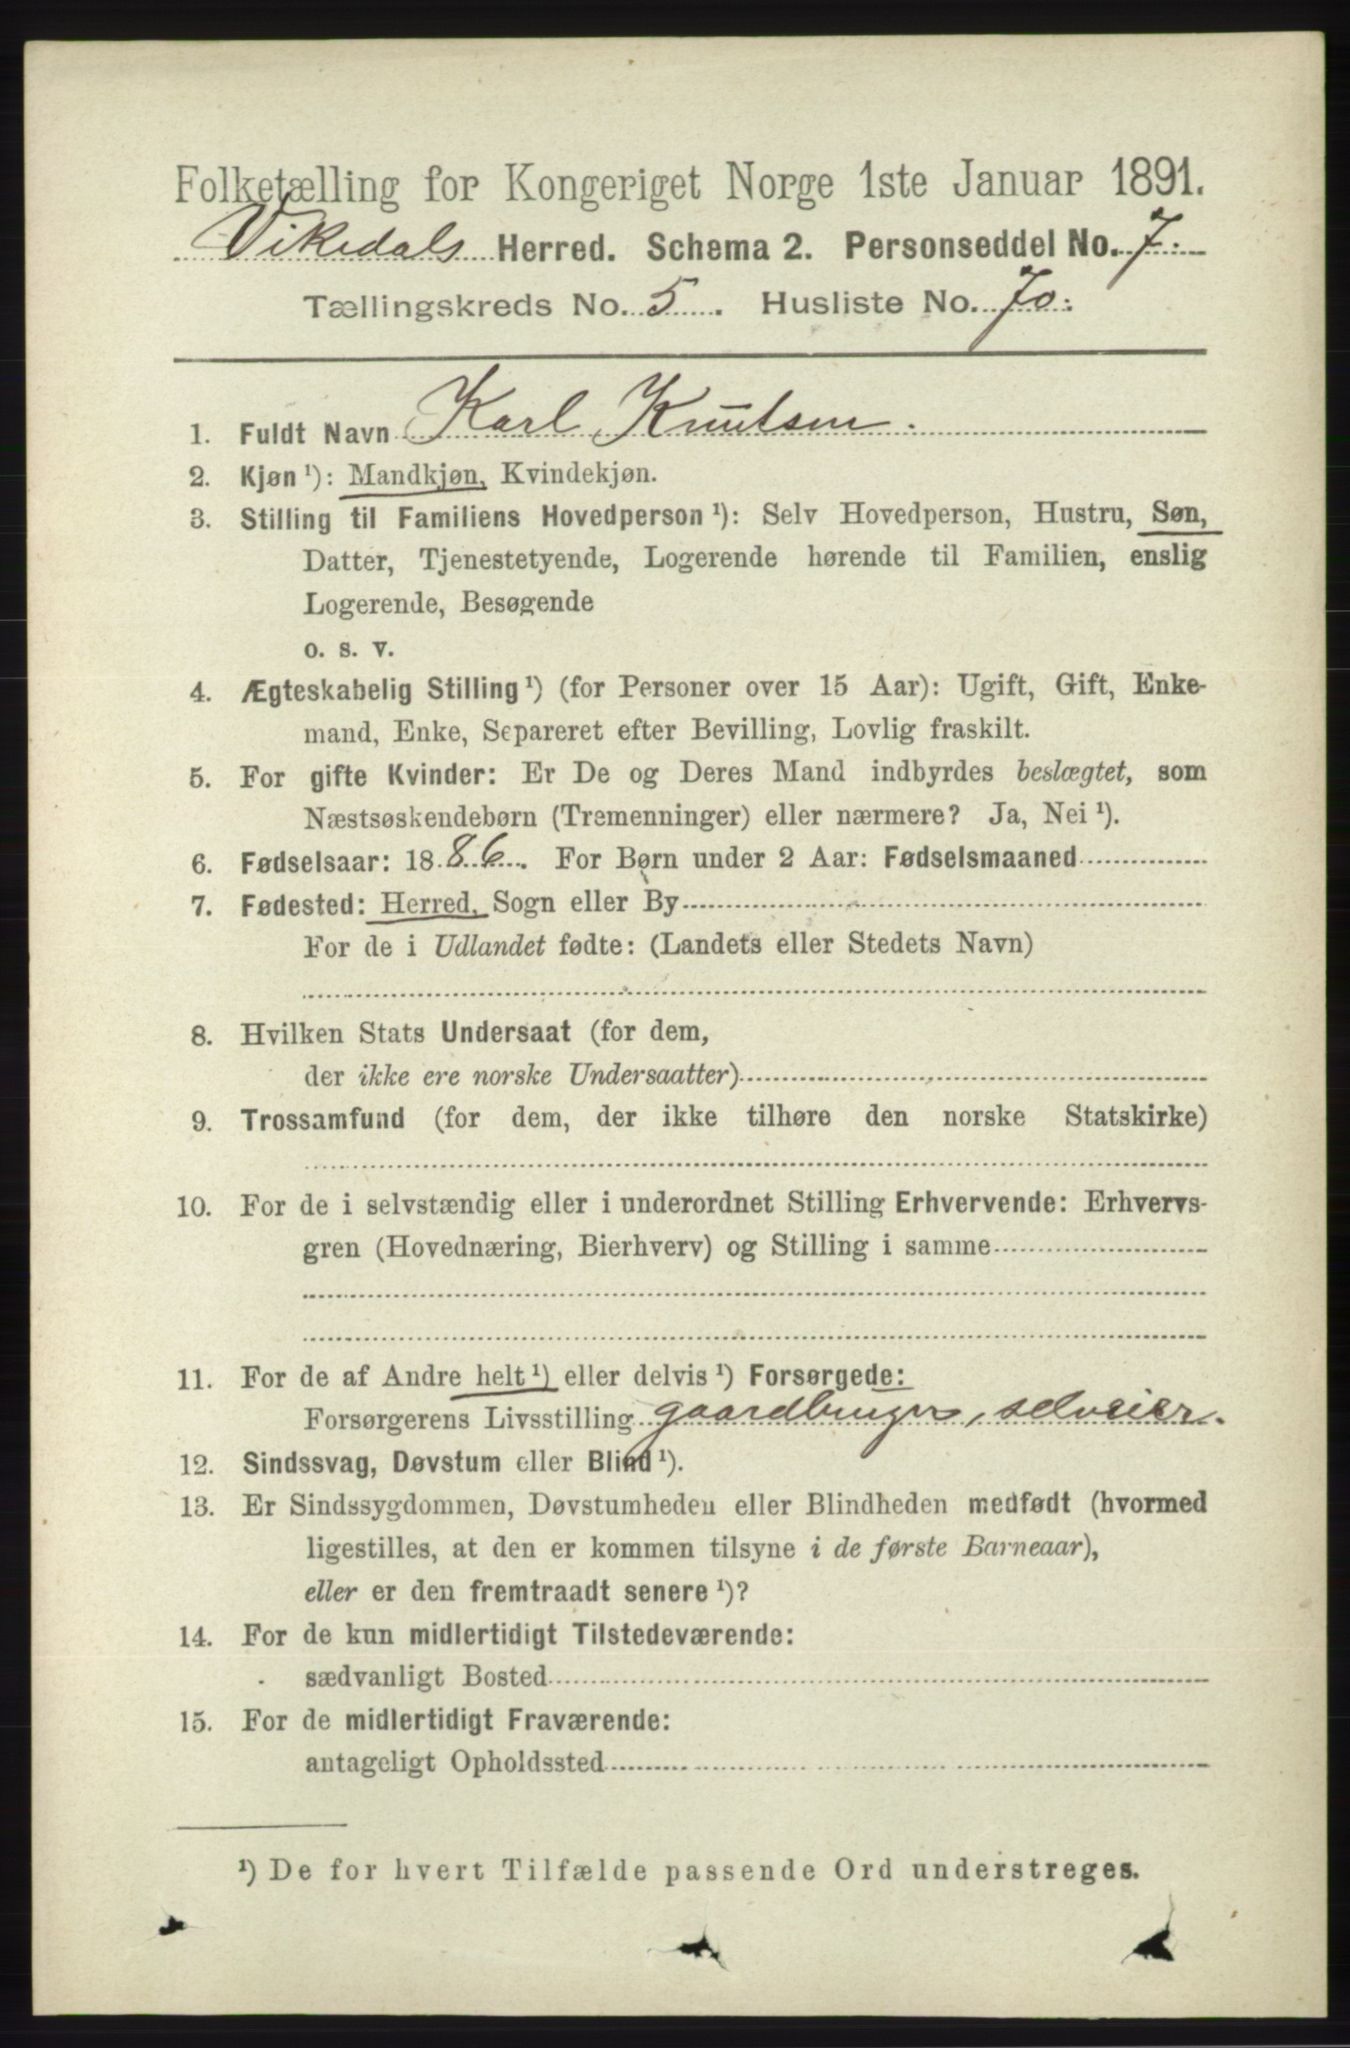 Folketælling for Kongeriget Norge 1ste Januar 1891.
Vikedals Herred. Schema 2. Personseddel No. 7.
Tællingskreds No. 5. Husliste No. 70.
1. Fuldt Navn Karl Knutsen.
2. Kjøn ¹): Mandkjøn, Kvindekjøn.
3. Stilling til Familiens Hovedperson ¹): Selv Hovedperson, Hustru, Søn,
Datter, Tjenestetyende, Logerende hørende til Familien, enslig
Logerende, Besøgende
o. s. v.
4. Ægteskabelig Stilling ¹) (for Personer over 15 Aar): Ugift, Gift, Enke-
mand, Enke, Separeret efter Bevilling, Lovlig fraskilt.
5. For gifte Kvinder: Er De og Deres Mand indbyrdes beslægtet, som
Næstsøskendebørn (Tremenninger) eller nærmere? Ja, Nei ¹).
6. Fødselsaar: 1886. For Børn under 2 Aar: Fødselsmaaned
7. Fødested: Herred, Sogn eller By
For de i Udlandet fødte: (Landets eller Stedets Navn)
8. Hvilken Stats Undersaat (for dem,
der ikke ere norske Undersaatter)
9. Trossamfund (for dem, der ikke tilhøre den norske Statskirke)
10. For de i selvstændig eller i underordnet Stilling Erhvervende: Erhvervs-
gren (Hovednæring, Bierhverv) og Stilling i samme
11. For de af Andre helt ¹) eller delvis ¹) Forsørgede:
Forsørgerens Livsstilling gaardbruger, selveier.
12. Sindssvag, Døvstum eller Blind ¹).
13. Er Sindssygdommen, Døvstumheden eller Blindheden medfødt (hvormed
ligestilles, at den er kommen tilsyne i de første Barneaar),
eller er den fremtraadt senere ¹)?
14. For de kun midlertidigt Tilstedeværende:
sædvanligt Bosted
15. For de midlertidigt Fraværende:
antageligt Opholdssted
¹) De for hvert Tilfælde passende Ord understreges.